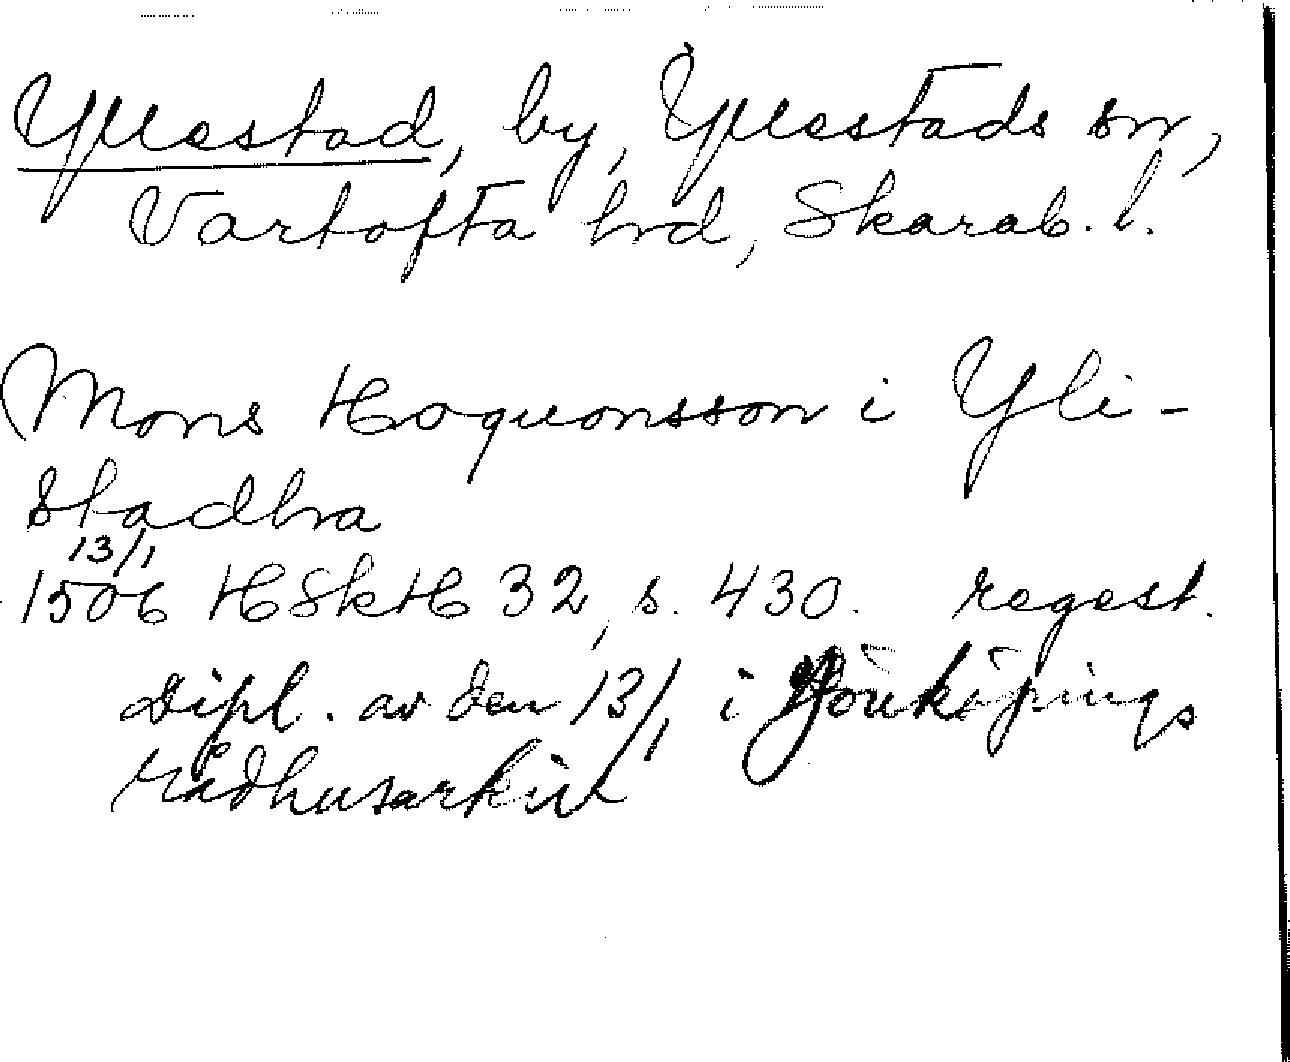 Yllestad, by, Yllestads sn,
Vartofta hrd, Skarab. l.
Mons Hoquonsson i Yli-
stadhra
13/1
1506 HSkH 32, s. 430. regest.
Dipl. av den 13/1 i Jönköpings
rådhusarkiv